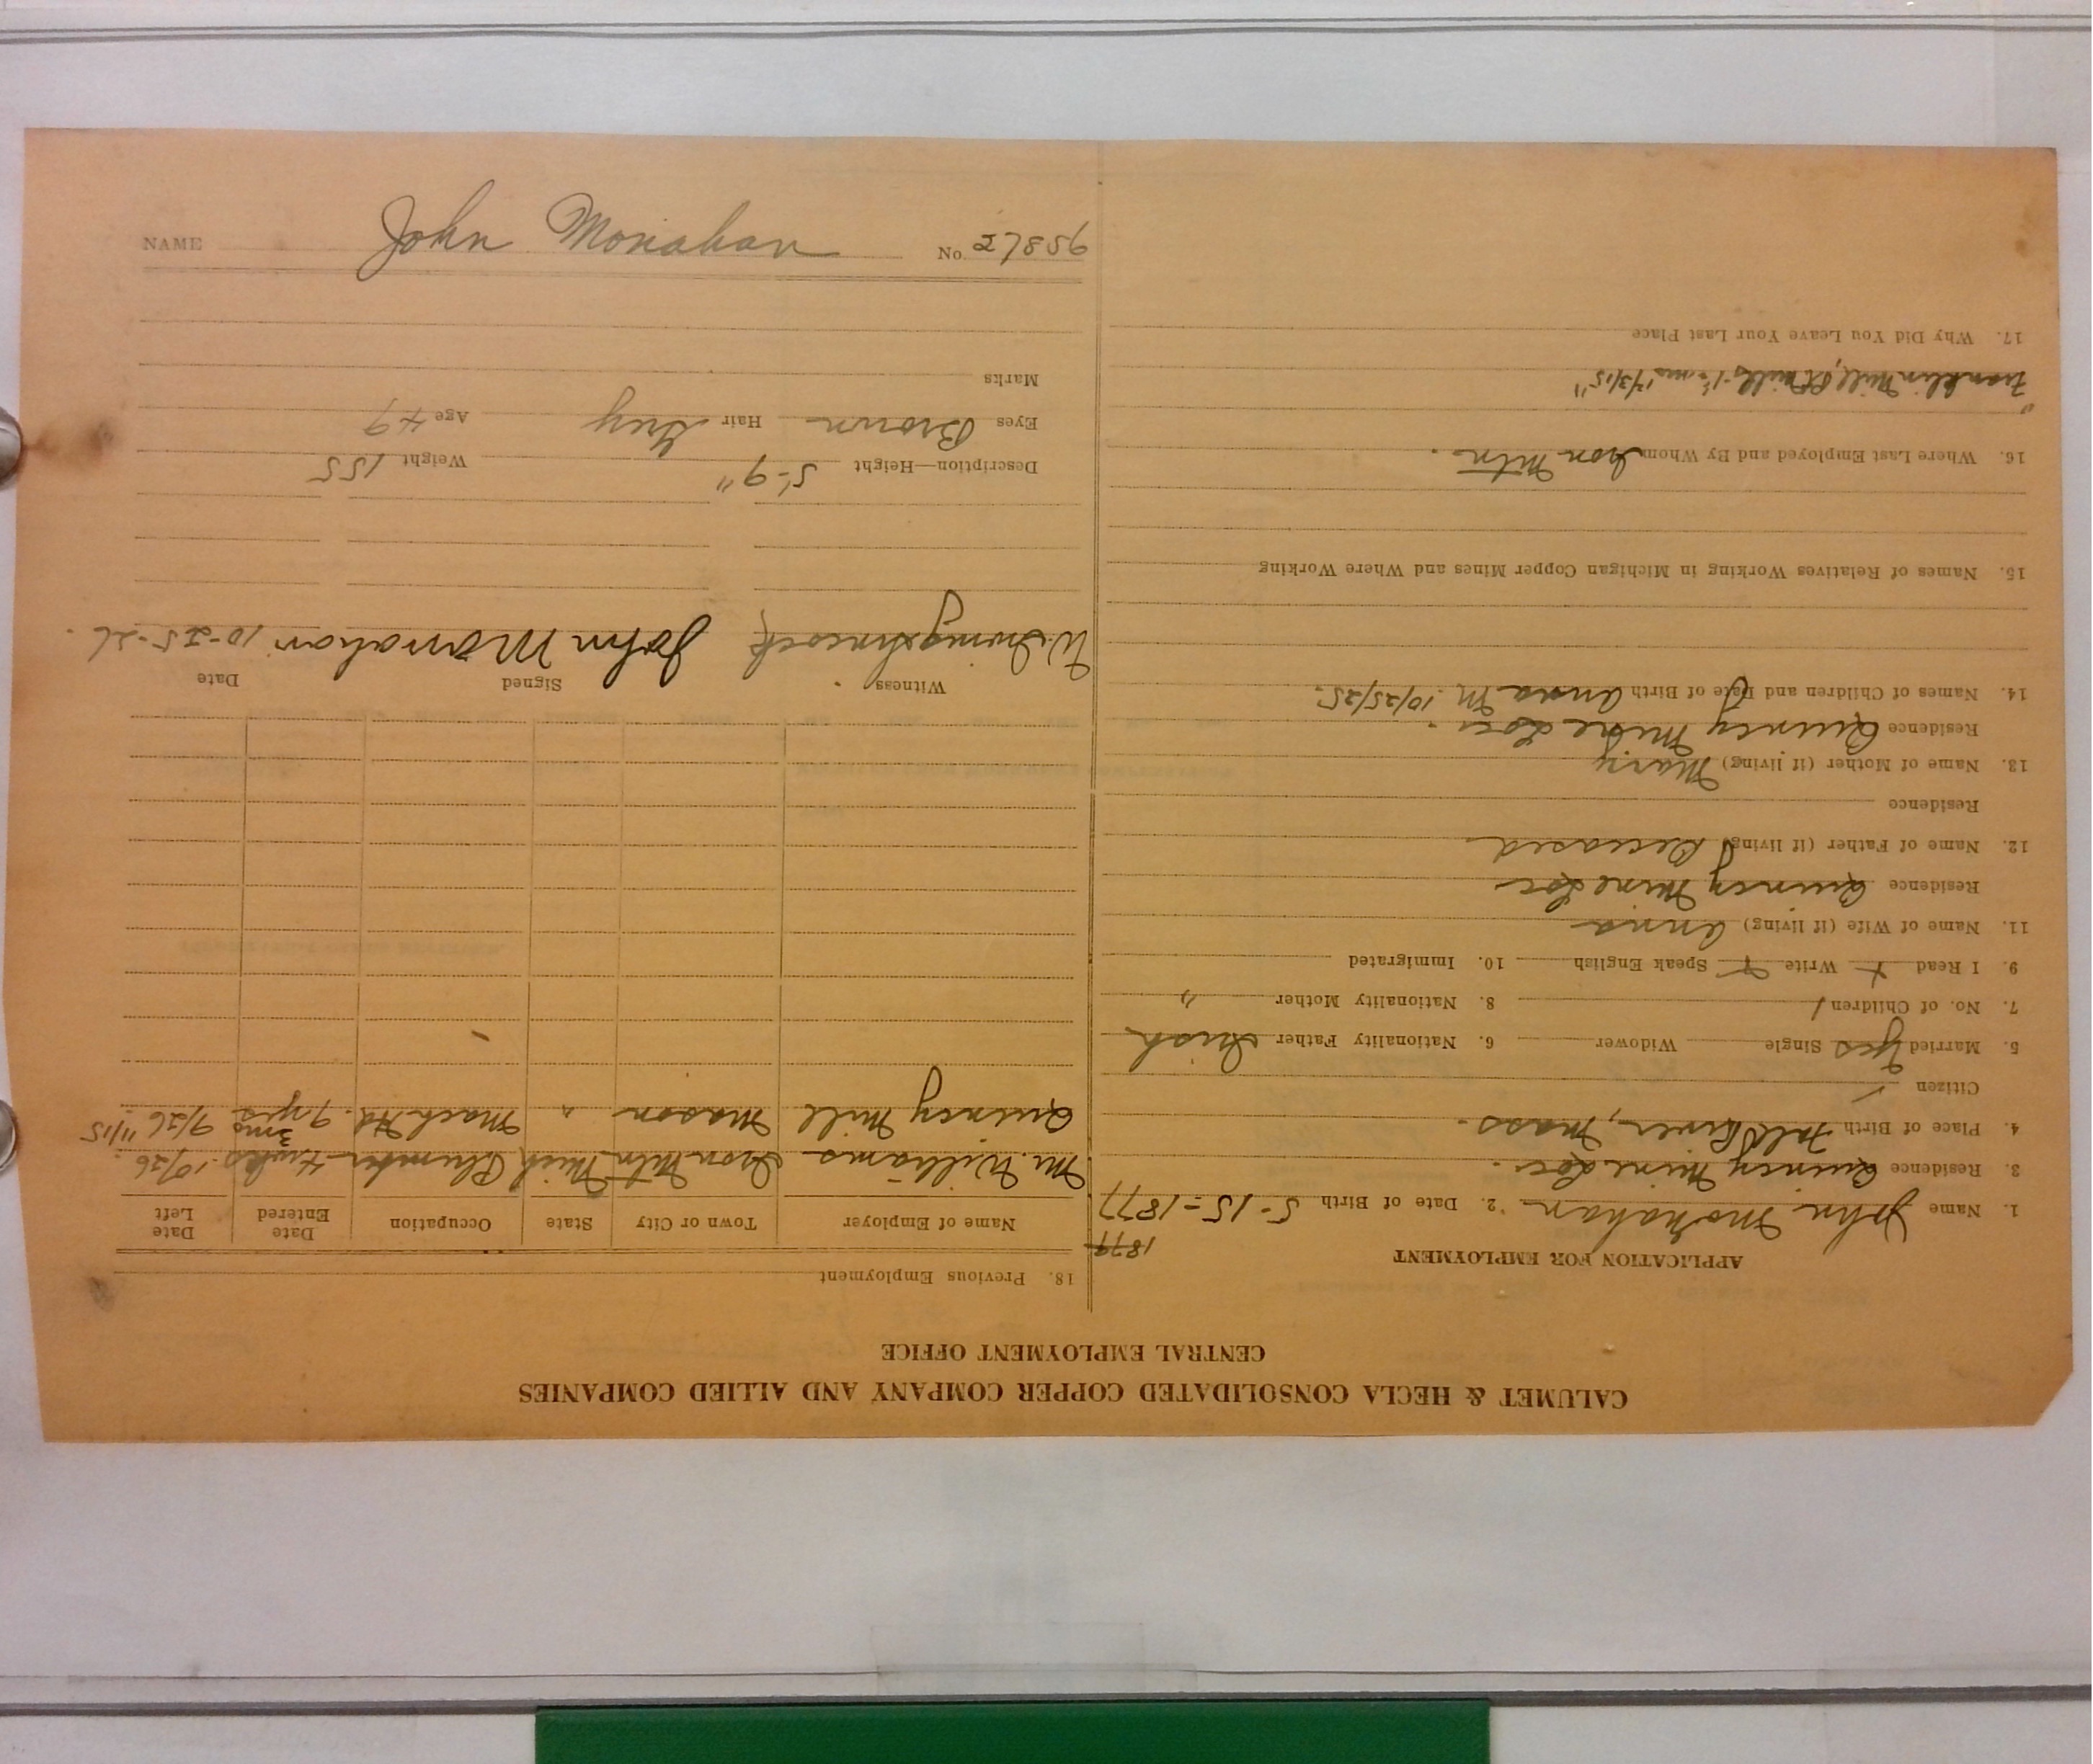 CALUMET & HECLA CONSOLIDATED COPPER COMPANY AND ALLIED COMPANIES
CENTRAL EMPLOYMENT OFFICE
APPLICATION FOR EMPLOYMENT
1879
1. Name John Monahan 2. Date of Birth 5-15-1877
3. Residence Quincy Mine Loc.
4. Place of Birth Fall River, Mass.
Citizen
5. Married Yes Single Widower 6. Nationality Father Irish
7. No. of Children 1 8. Nationality Mother "
9. I Read Write Speak English 10. Immigrated
11. Name of Wife (if living) Anna
Residence Quincy Mine Loc
12. Name of Father (if living) Deceased
Residence
13. Name of Mother (if living) Mary
Residence Quincy Mine Loc.
14. Names of Children and Date of Birth Anna M. 10/25/25.
15. Names of Relatives Working in Michigan Copper Mines and Where Working
16. Where Last Employed and By Whom Iron Mtn.
Franklin Mill,
17. Why Did You Leave Your Last Place
18. Previous Employment
Name of Employer Town or City State Occupation Date Entered Date Left
Mr. Williams Iron Mtn Mich Plumber 4 wks. 10/26.
Quincy Mill Mason " Mach. Hd. 9 yrs 3 mo 9/26 11/15
Witness Signed Date
John Monahan 10-25-26.
Description—Height 5'-9" Weight 155
Eyes Brown Hair Grey Age 49
Marks
NAME John Monahan No.